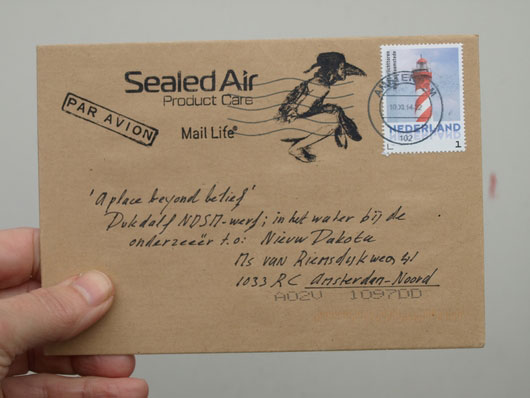 Sealed Air
Product Care
PAR AVION
Mail Life®
AMSTERDAM
10.XI.14.22
102
NEDERLAND
1
'A place beyond belief'
Dukdalf NDSM-werf; in het water bij de
onderzeeër t.o: Nieuw Dakota
Ms van Riemsdijkweg 41
1033 RC Amsterdam-Noord
A02V 1097DD